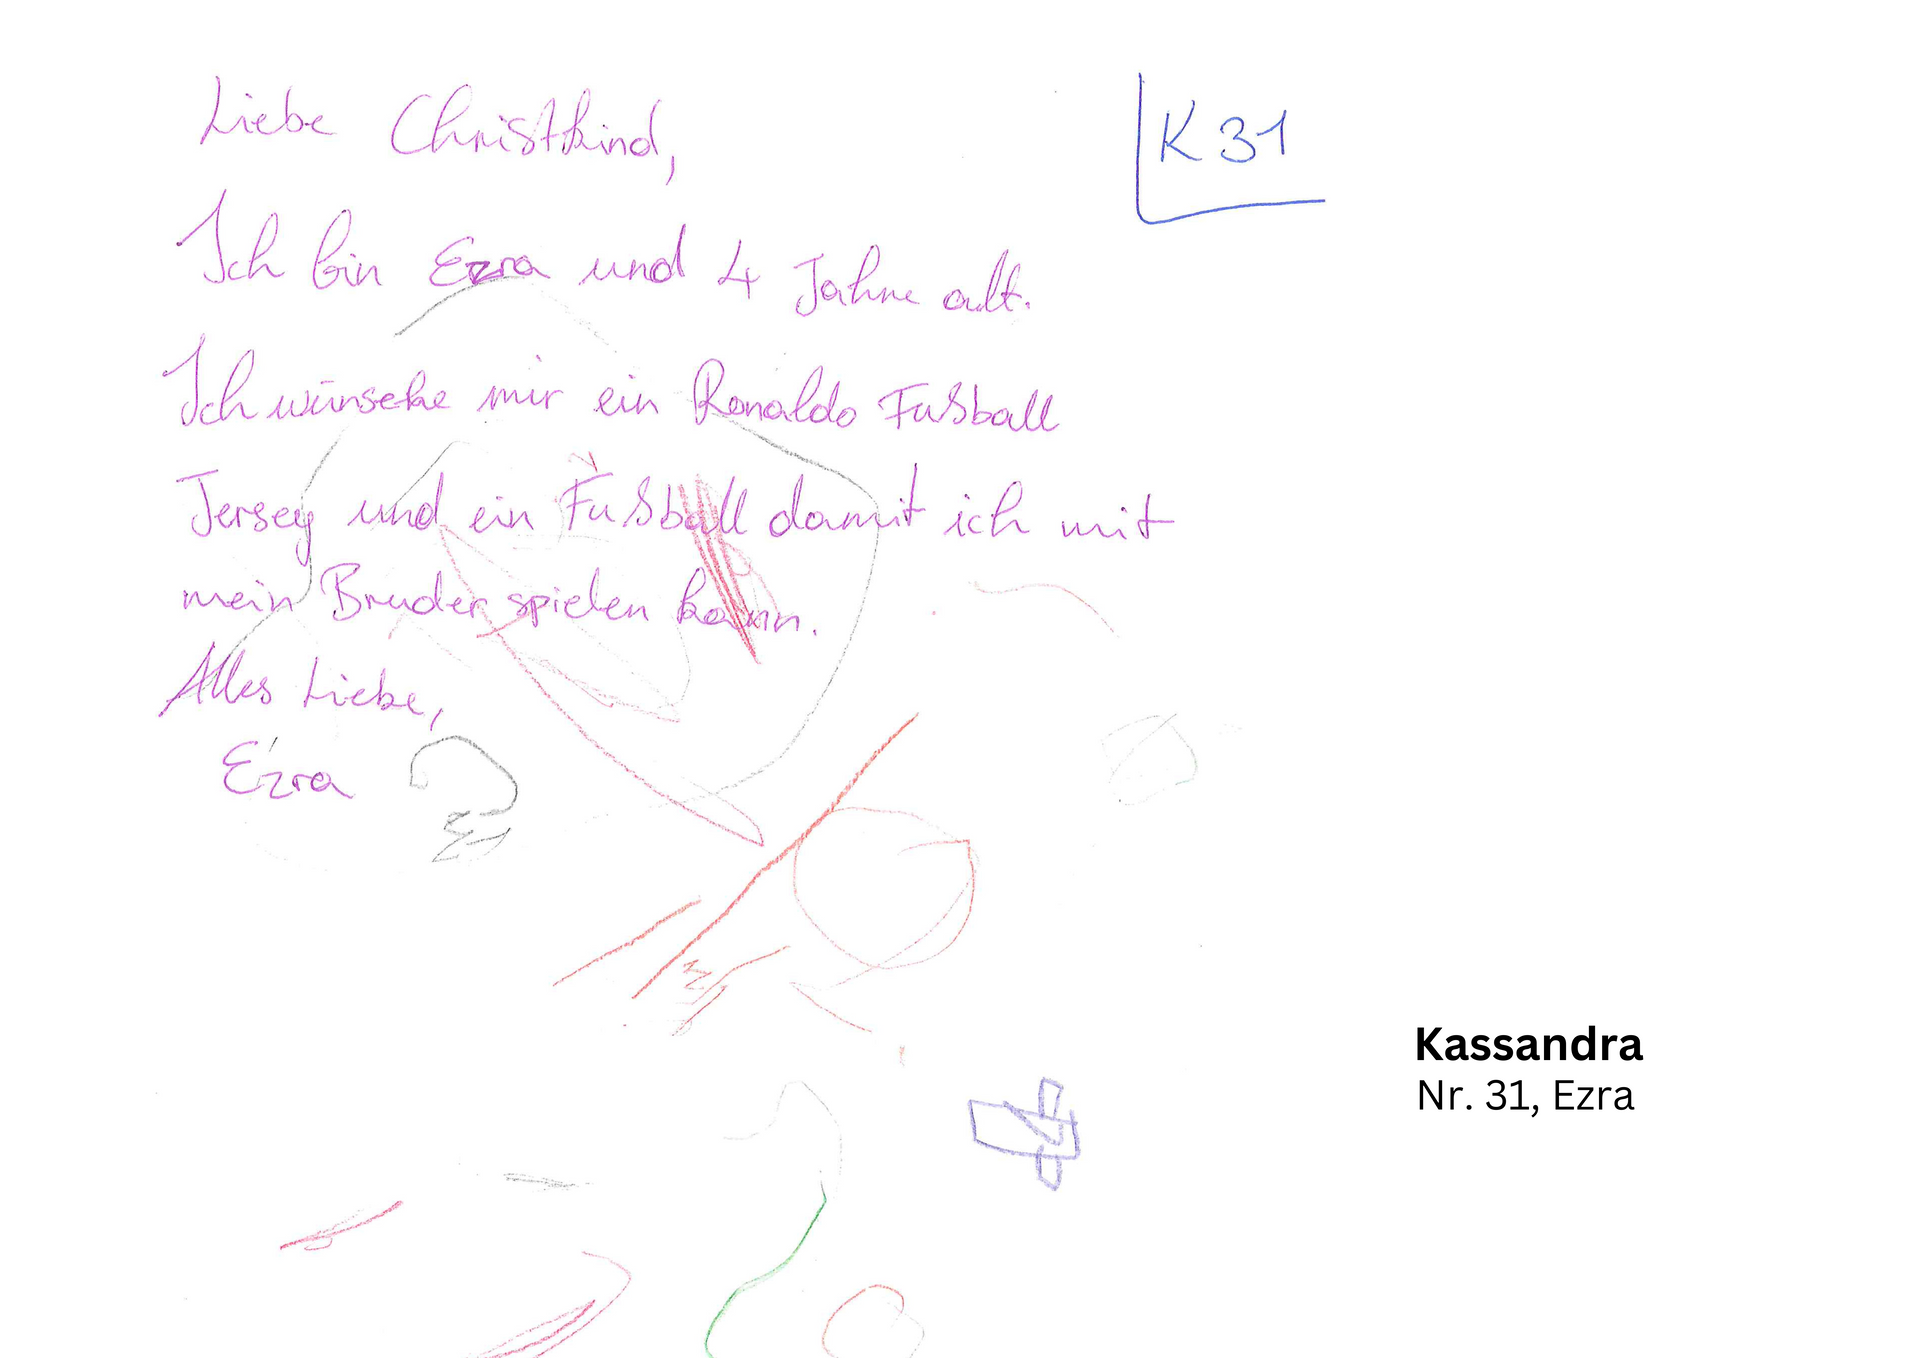 Liebe Christkind,
K 31
Ich bin Ezra und 4 Jahre alt.
Ich wünsche mir ein Ronaldo Fußball
Jersey und ein Fußball damit ich mit
mein Bruder spielen kann.
Alles Liebe,
Ezra
Kassandra
Nr. 31, Ezra